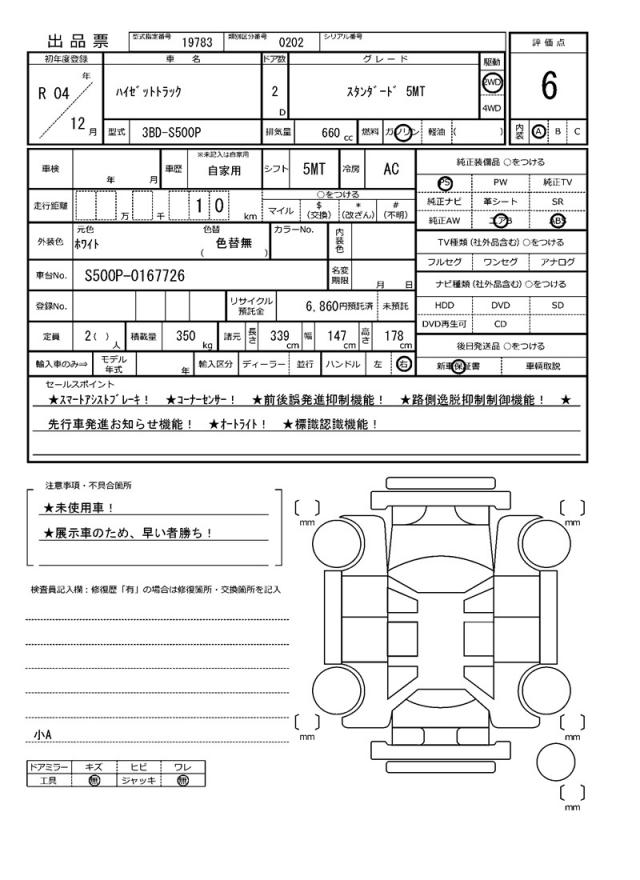 出品票 型式指定番号 19783 類別区分番号 0202 シリアル番号
初年度登録 車名 ドア数 グレード 駆動 評価点
R 04 年 12 月 ハイゼットトラック 2 D スタンダード 5MT 2WD 4WD 6
型式 3BD-S500P 排気量 660 cc 燃料 ガソリン 軽油 ( ) 内装 A B C
車検 年 月 車歴 ※未記入は自家用 自家用 シフト 5MT 冷房 AC 純正装備品 ○をつける
PS PW 純正TV
走行距離 万 千 1 0 km ○をつける 純正ナビ 革シート SR
マイル $(交換) *(改ざん) #(不明) 純正AW エアB ABS
外装色 元色 ホワイト 色替 色替無 ( ) カラーNo. 内装色 TV種類 (社外品含む) ○をつける
フルセグ ワンセグ アナログ
車台No. S500P-0167726 名変期限 月 日 ナビ種類 (社外品含む) ○をつける
登録No. リサイクル預託金 6,860円預託済 未預託 HDD DVD SD
DVD再生可 CD
定員 2( ) 人 積載量 350 kg 諸元 長さ 339 cm 幅 147 cm 高さ 178 cm 後日発送品 ○をつける
輸入車のみ⇒ モデル年式 年 輸入区分 ディーラー 並行 ハンドル 左 右 新車保証書 車輌取説
セールスポイント
★スマートアシストブレーキ! ★コーナーセンサー! ★前後誤発進抑制機能! ★路側逸脱抑制制御機能! ★
先行車発進お知らせ機能! ★オートライト! ★標識認識機能!
注意事項・不具合箇所
★未使用車!
★展示車のため、早い者勝ち!
検査員記入欄:修復歴「有」の場合は修復箇所・交換箇所を記入
小A
ドアミラー キズ ヒビ ワレ
工具 無 ジャッキ 無
[ ] mm
[ ] mm
[ ] mm
[ ] mm
[ ] mm